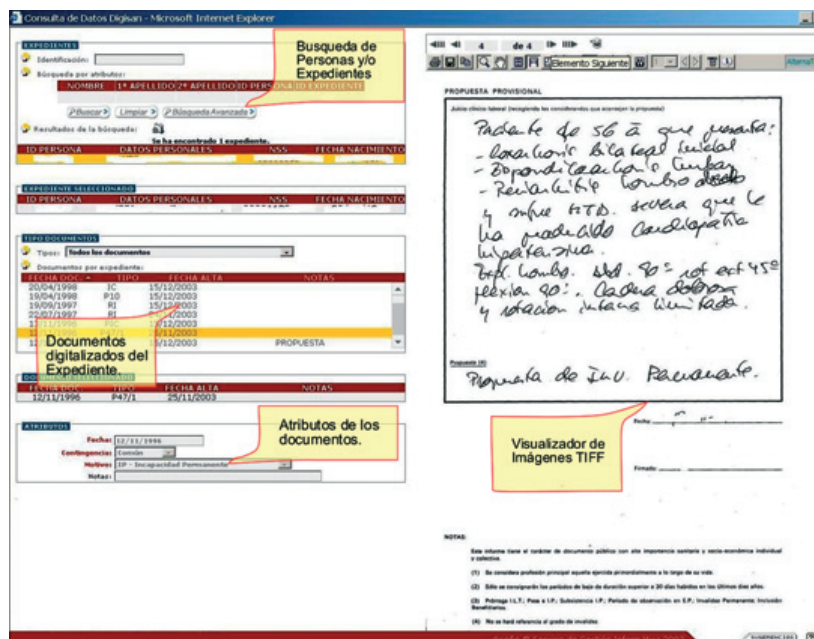 Consulta de Datos Digisan - Microsoft Internet Explorer
EXPEDIENTES
Identificación:
Búsqueda por atributos:
NOMBRE 1º APELLIDO 2º APELLIDO ID PERSONA ID EXPEDIENTE
Buscar Limpiar Búsqueda Avanzada
Resultados de la búsqueda:
Se ha encontrado 1 expediente.
ID PERSONA DATOS PERSONALES NSS FECHA NACIMIENTO
EXPEDIENTE SELECCIONADO
ID PERSONA DATOS PERSONALES NSS FECHA NACIMIENTO
TIPO DOCUMENTOS
Tipos: Todos los documentos
Documentos por expediente:
FECHA DOC. TIPO FECHA ALTA NOTAS
20/04/1998 IC 15/12/2003
19/04/1998 P10 15/12/2003
19/09/1997 RI 15/12/2003
22/07/1997 RI
PROPUESTA
FECHA DOC. TIPO FECHA ALTA NOTAS
12/11/1996 P47/1 25/11/2003
ATRIBUTOS
Fecha: 12/11/1996
Contingencia: Común
Motivo: IP - Incapacidad Permanente
Notas:
Busqueda de
Personas y/o
Expedientes
Documentos
digitalizados del
Expediente.
Atributos de los
documentos.
4 de 4
Elemento Siguiente
PROPUESTA PROVISIONAL
Juicio clínico laboral (recogiendo los considerandos que aconsejan la propuesta)
Paciente de 56 a que presenta:
- Coxartrosis bilateral inicial
- Espondiloartrosis lumbar
- Periartritis hombro
y sufre HTA. severa que le
ha producido Cardiopatía
hipertensiva.
Expl. hombro. abd. 90º rot ext 45º
flexion 90º. Cadera dolorosa
y rotacion interna limitada.
Propuesta (4)
Propuesta de Inv. Permanente.
Fecha:
Firmado:
Visualizador de
Imágenes TIFF
NOTAS:
Este informe tiene el carácter de documento público con alta importancia sanitaria y socio-económica individual
y colectiva.
(1) Se considera profesión principal aquella ejercida primordialmente a lo largo de su vida.
(2) Sólo se consignarán los períodos de baja de duración superior a 20 días habidos en los últimos diez años.
(3) Prórroga I.L.T.; Pase a I.P.; Subsistencia I.P.; Período de observación en E.P.; Invalidez Permanente; Inclusión
Beneficiarios.
(4) No se hará referencia al grado de invalidez.